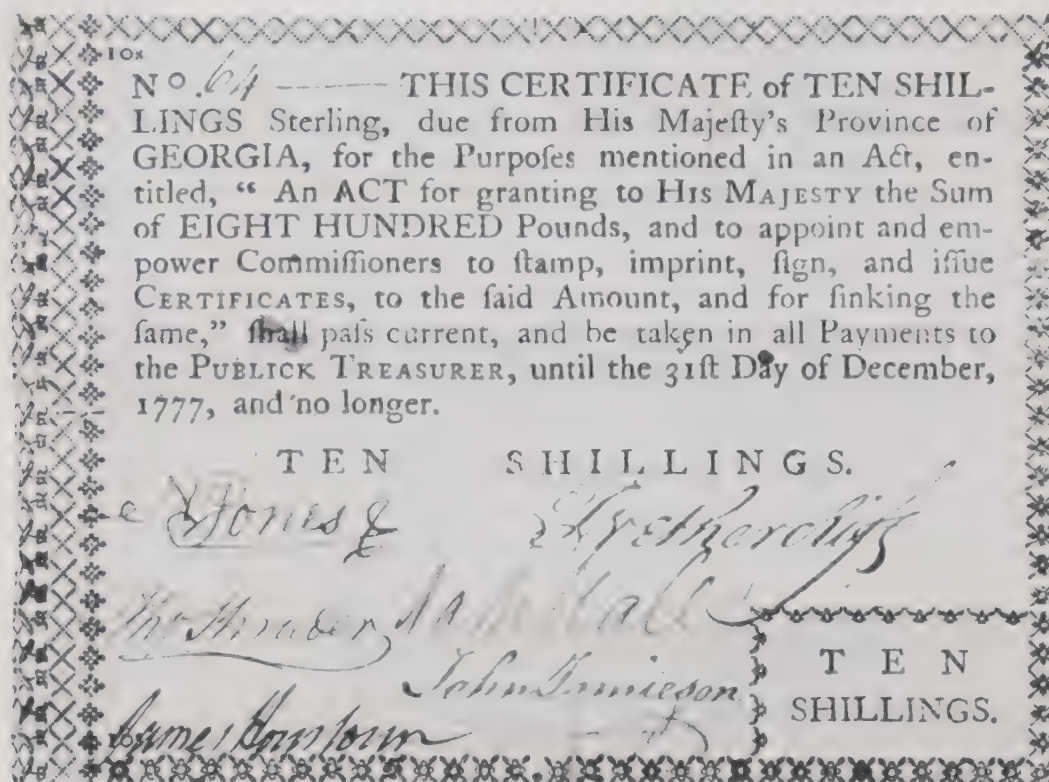 10s
No. 64 THIS CERTIFICATE of TEN SHIL-
LINGS Sterling, due from His Majeſty's Province of
GEORGIA, for the Purpoſes mentioned in an Act, en-
titled, “ An ACT for granting to HIS MAJESTY the Sum
of EIGHT HUNDRED Pounds, and to appoint and em-
power Commiſſioners to ſtamp, imprint, ſign, and iſſue
CERTIFICATES, to the ſaid Amount, and for ſinking the
ſame,” ſhall paſs current, and be taken in all Payments to
the PUBLICK TREASURER, until the 31ſt Day of December,
1777, and no longer.
TEN SHILLINGS.
Jones
John Jamieson
TEN
SHILLINGS.
James